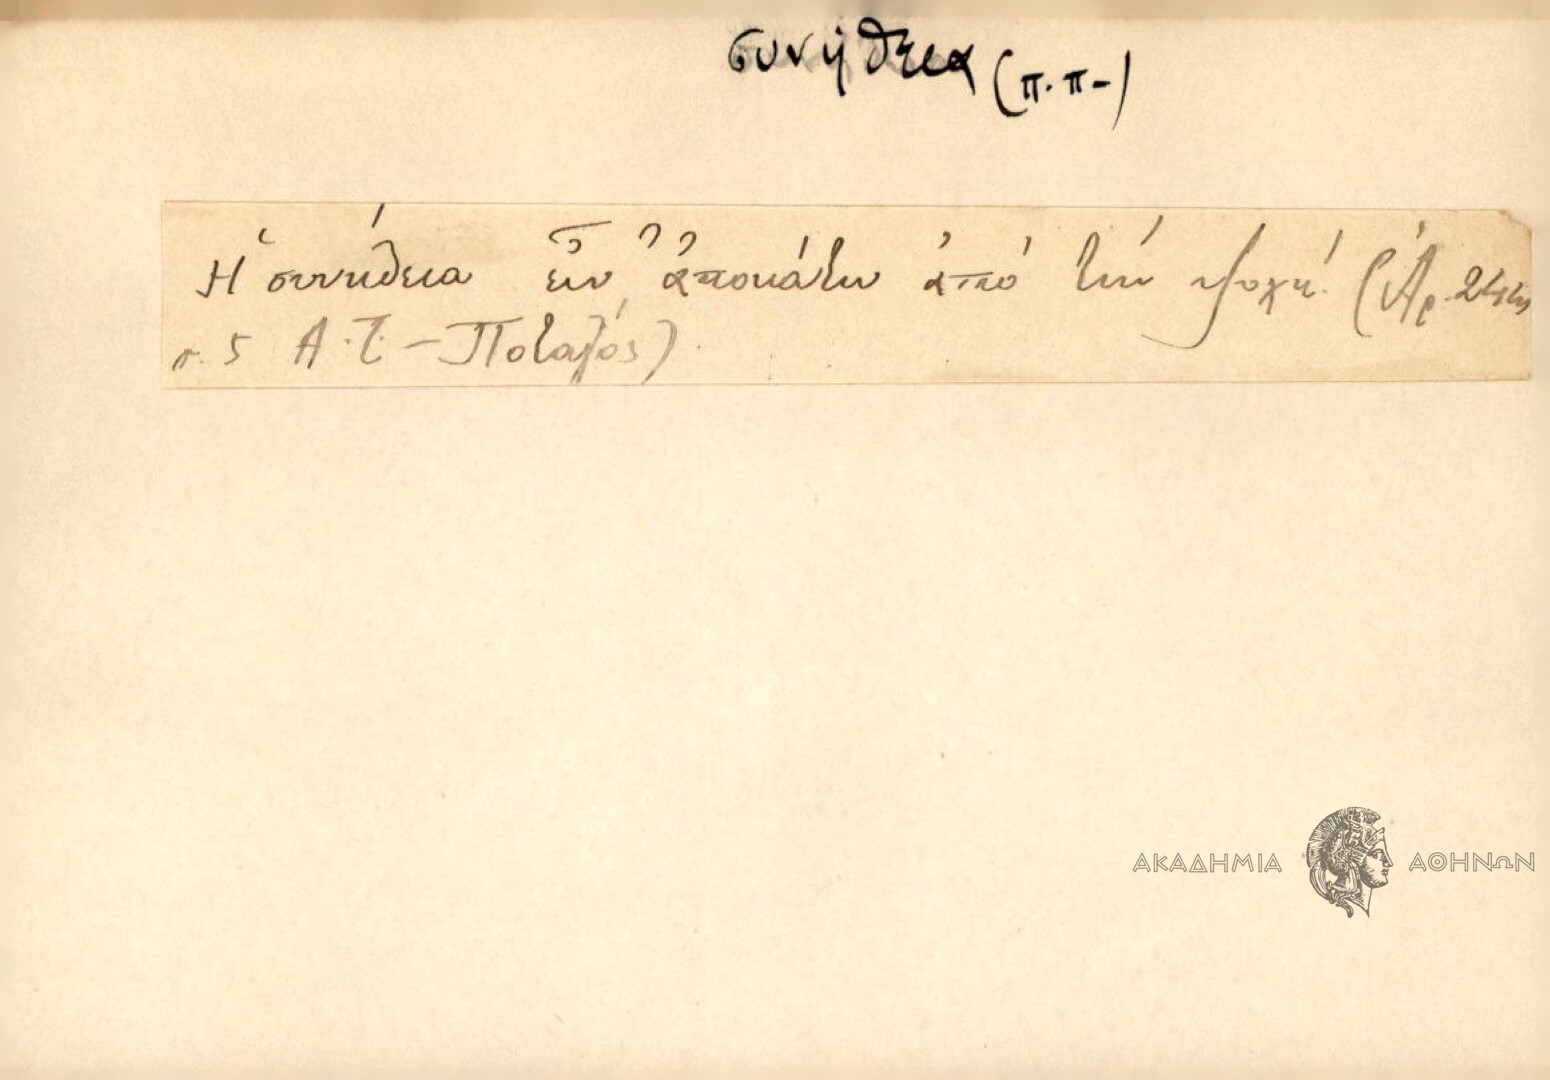 συνήθεια (π.π-)
Ἡ συνήθεια εἶν ἀποκάτω ἀπὸ τὴν ψυχή. (Ἀρ. 244
σ. 5 Α.Τ. – Ποταμός)
ΑΚΑΔΗΜΙΑ ΑΘΗΝΩΝ